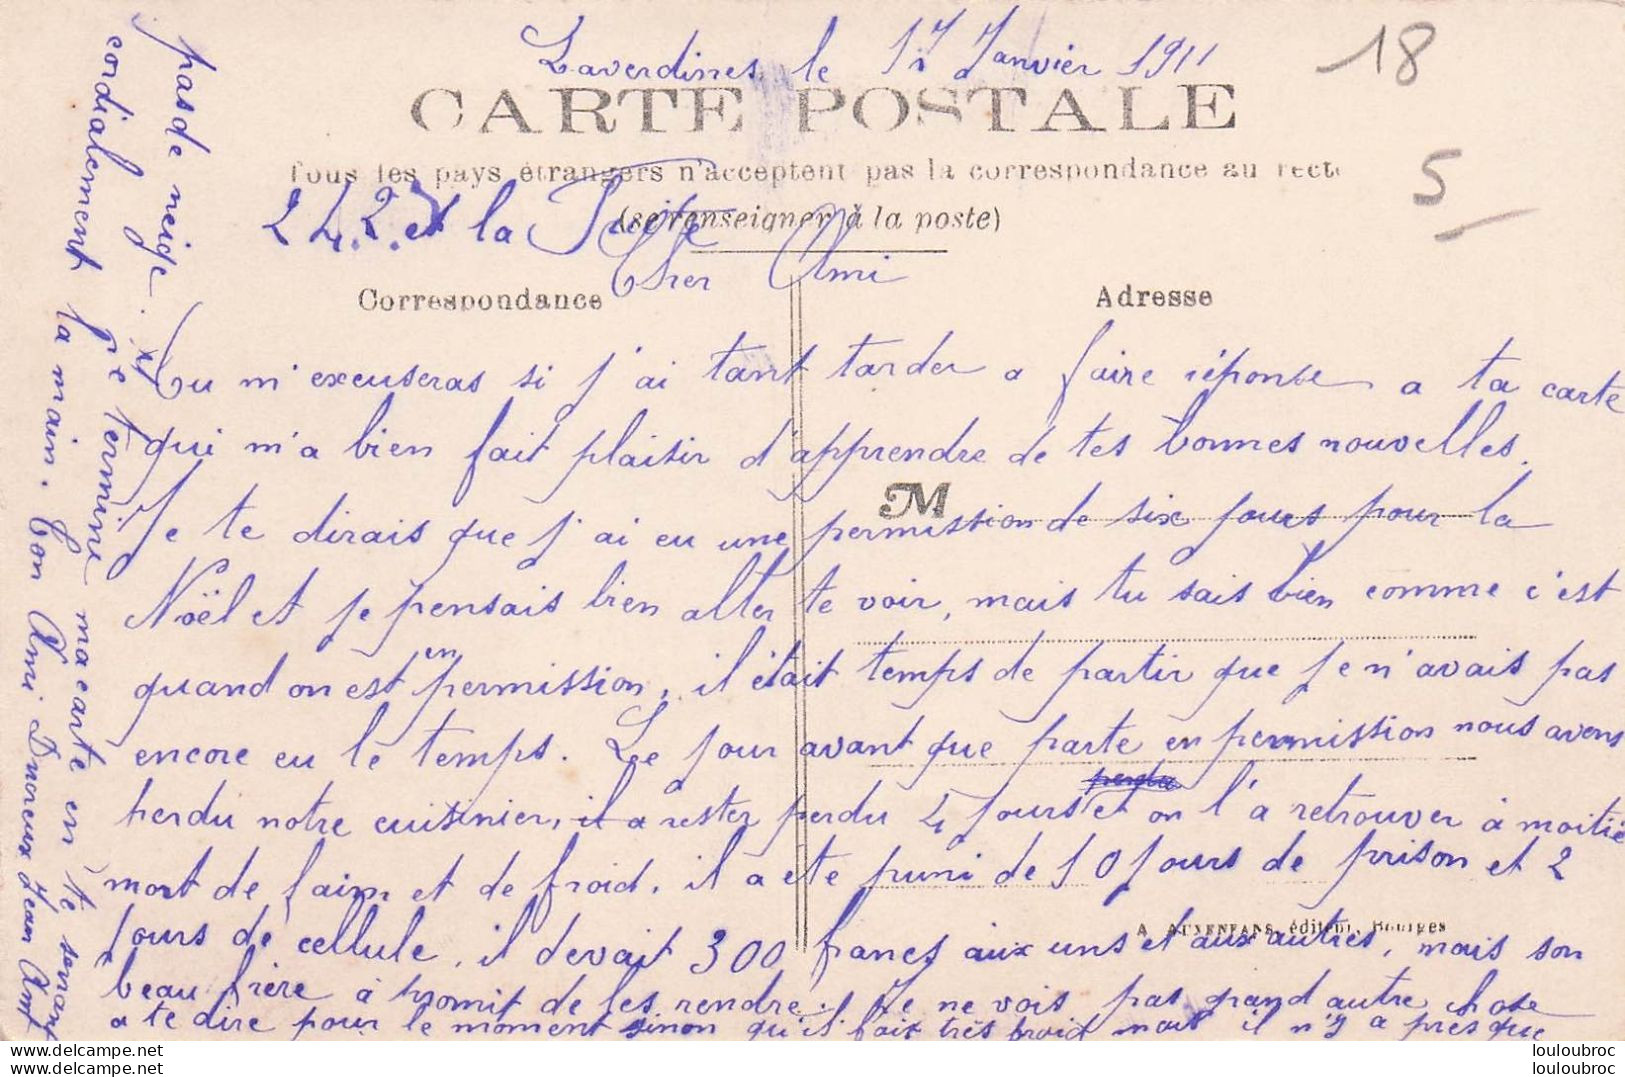 Laverdines le 17 Janvier 1911
18
CARTE POSTALE
5
Tous les pays étrangers n'acceptent pas la correspondance au recto
(se renseigner à la poste)
242 et la
Cher Ami
Correspondance
Adresse
Tu m'excuseras si j'ai tant tarder a faire réponse a ta carte
qui m'a bien fait plaisir d'apprendre de tes bonnes nouvelles.
M
Je te dirais que j'ai eu une permission de six jours pour la
Noël et je pensais bien aller te voir, mais tu sais bien comme c'est
quand on est en permission, il était temps de partir que je n'avais pas
encore eu le temps. Le jour avant que parte en permission nous avons
perdu notre cuisinier, il a rester perdu 4 jours et on l'a retrouver à moitié
mort de faim et de froid, il a ete puni de 10 jours de prison et 2
A. AUXENFANS, éditeur, BOURGES
jours de cellule, il devait 300 francs aux uns et aux autres, mais son
beau frère à promit de les rendre. Je ne vois pas grand autre chose
a te dire pour le moment sinon qu'il fait très froid mais il n'y a presque
pas de neige. Je termine ma carte en te serrant
cordialement la main. Ton Ami Jean
louloubroc
louloubroc